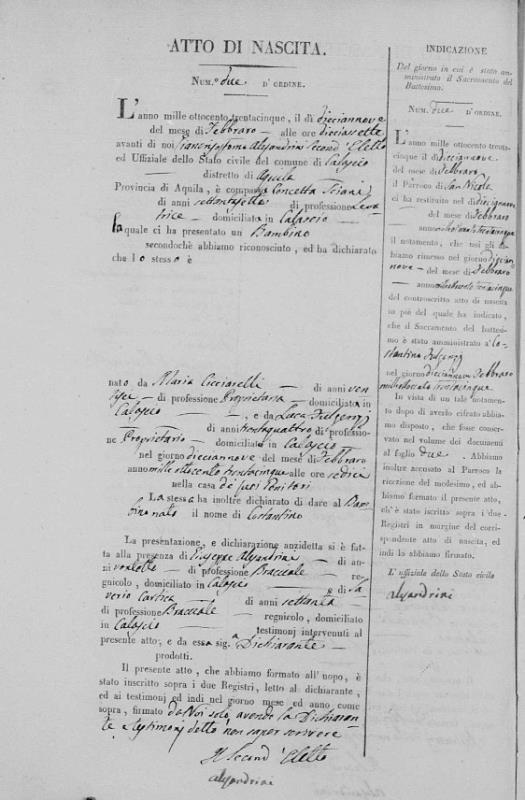 ATTO DI NASCITA.
NUM.° due D'ORDINE.
L'anno mille ottocento trentacinque, il dì dicciannove
del mese di Febbraro alle ore dicciassette
avanti di noi Alesandrini Second' Eletto
ed Uffiziale dello Stato civile del comune di Calascio
distretto di Aquila
Provincia di Aquila, è comparsa Concetta
di anni di professione Leva
trice domiciliata in Calascio
la quale ci ha presentato un Bambino
secondochè abbiamo riconosciuto, ed ha dichiarato
che lo stesso è
nato da Maria Cicciarelli di anni ven
di professione Proprietaria domiciliata in
Calascio e da Luca Fulgenzj
di anni trentaquattro di professio-
ne Proprietario domiciliato in Calascio
nel giorno dicciannove del mese di Febbraro
anno mille ottocento trentacinque alle ore sedici
nella casa de' suoi Genitori
La stessa ha inoltre dichiarato di dare al Bam
bino nato il nome di Costantino
La presentazione, e dichiarazione anzidetta si è fat-
ta alla presenza di Giuseppe Alesandrini di an-
ni ventotto di professione Bracciale re-
gnicolo, domiciliato in Calascio e di Sa
verio di anni settanta
di professione Bracciale regnicolo, domiciliato
in Calascio testimonj intervenuti al
presente atto, e da essa sig.ª Dichiarante
prodotti.
Il presente atto, che abbiamo formato all'uopo, è
stato inscritto sopra i due Registri, letto al dichiarante,
ed ai testimonj ed indi nel giorno mese ed anno come
sopra, firmato da Noi solo, avendo la Dichiaran
te e testimonj detto non saper scrivere
Il Second' Eletto
Alesandrini
INDICAZIONE
Del giorno in cui è stato am-
ministrato il Sacramento del
Battesimo.
NUM. due D'ORDINE.
L'anno mille ottocento trenta-
cinque il dicciannove
del mese di Febbraro
il Parroco di San Nicola
ci ha restituito nel dicciannove
del mese di Febbraro
anno milleottocentotrentacinque
il notamento, che noi gli ab-
biamo rimesso nel giorno diccian
nove del mese di Febbraro
anno milleottocento trentacinque
del controscritto atto di nascita
in piè del quale ha indicato,
che il Sacramento del battesi-
mo è stato amministrato a Co-
stantino Fulgenzj
nel giorno dicciannove Febbraro
milleottocento trentacinque
In vista di un tale notamento
dopo di averlo cifrato abbia-
mo disposto, che fosse conser-
vato nel volume dei documenti
al foglio due. Abbiamo
inoltre accusato al Parroco la
ricezione del medesimo, ed ab-
biamo formato il presente atto,
ch'è stato iscritto sopra i due
Registri in margine del corri-
spondente atto di nascita, ed
indi lo abbiamo firmato.
L'uffiziale dello Stato civile
Alesandrini